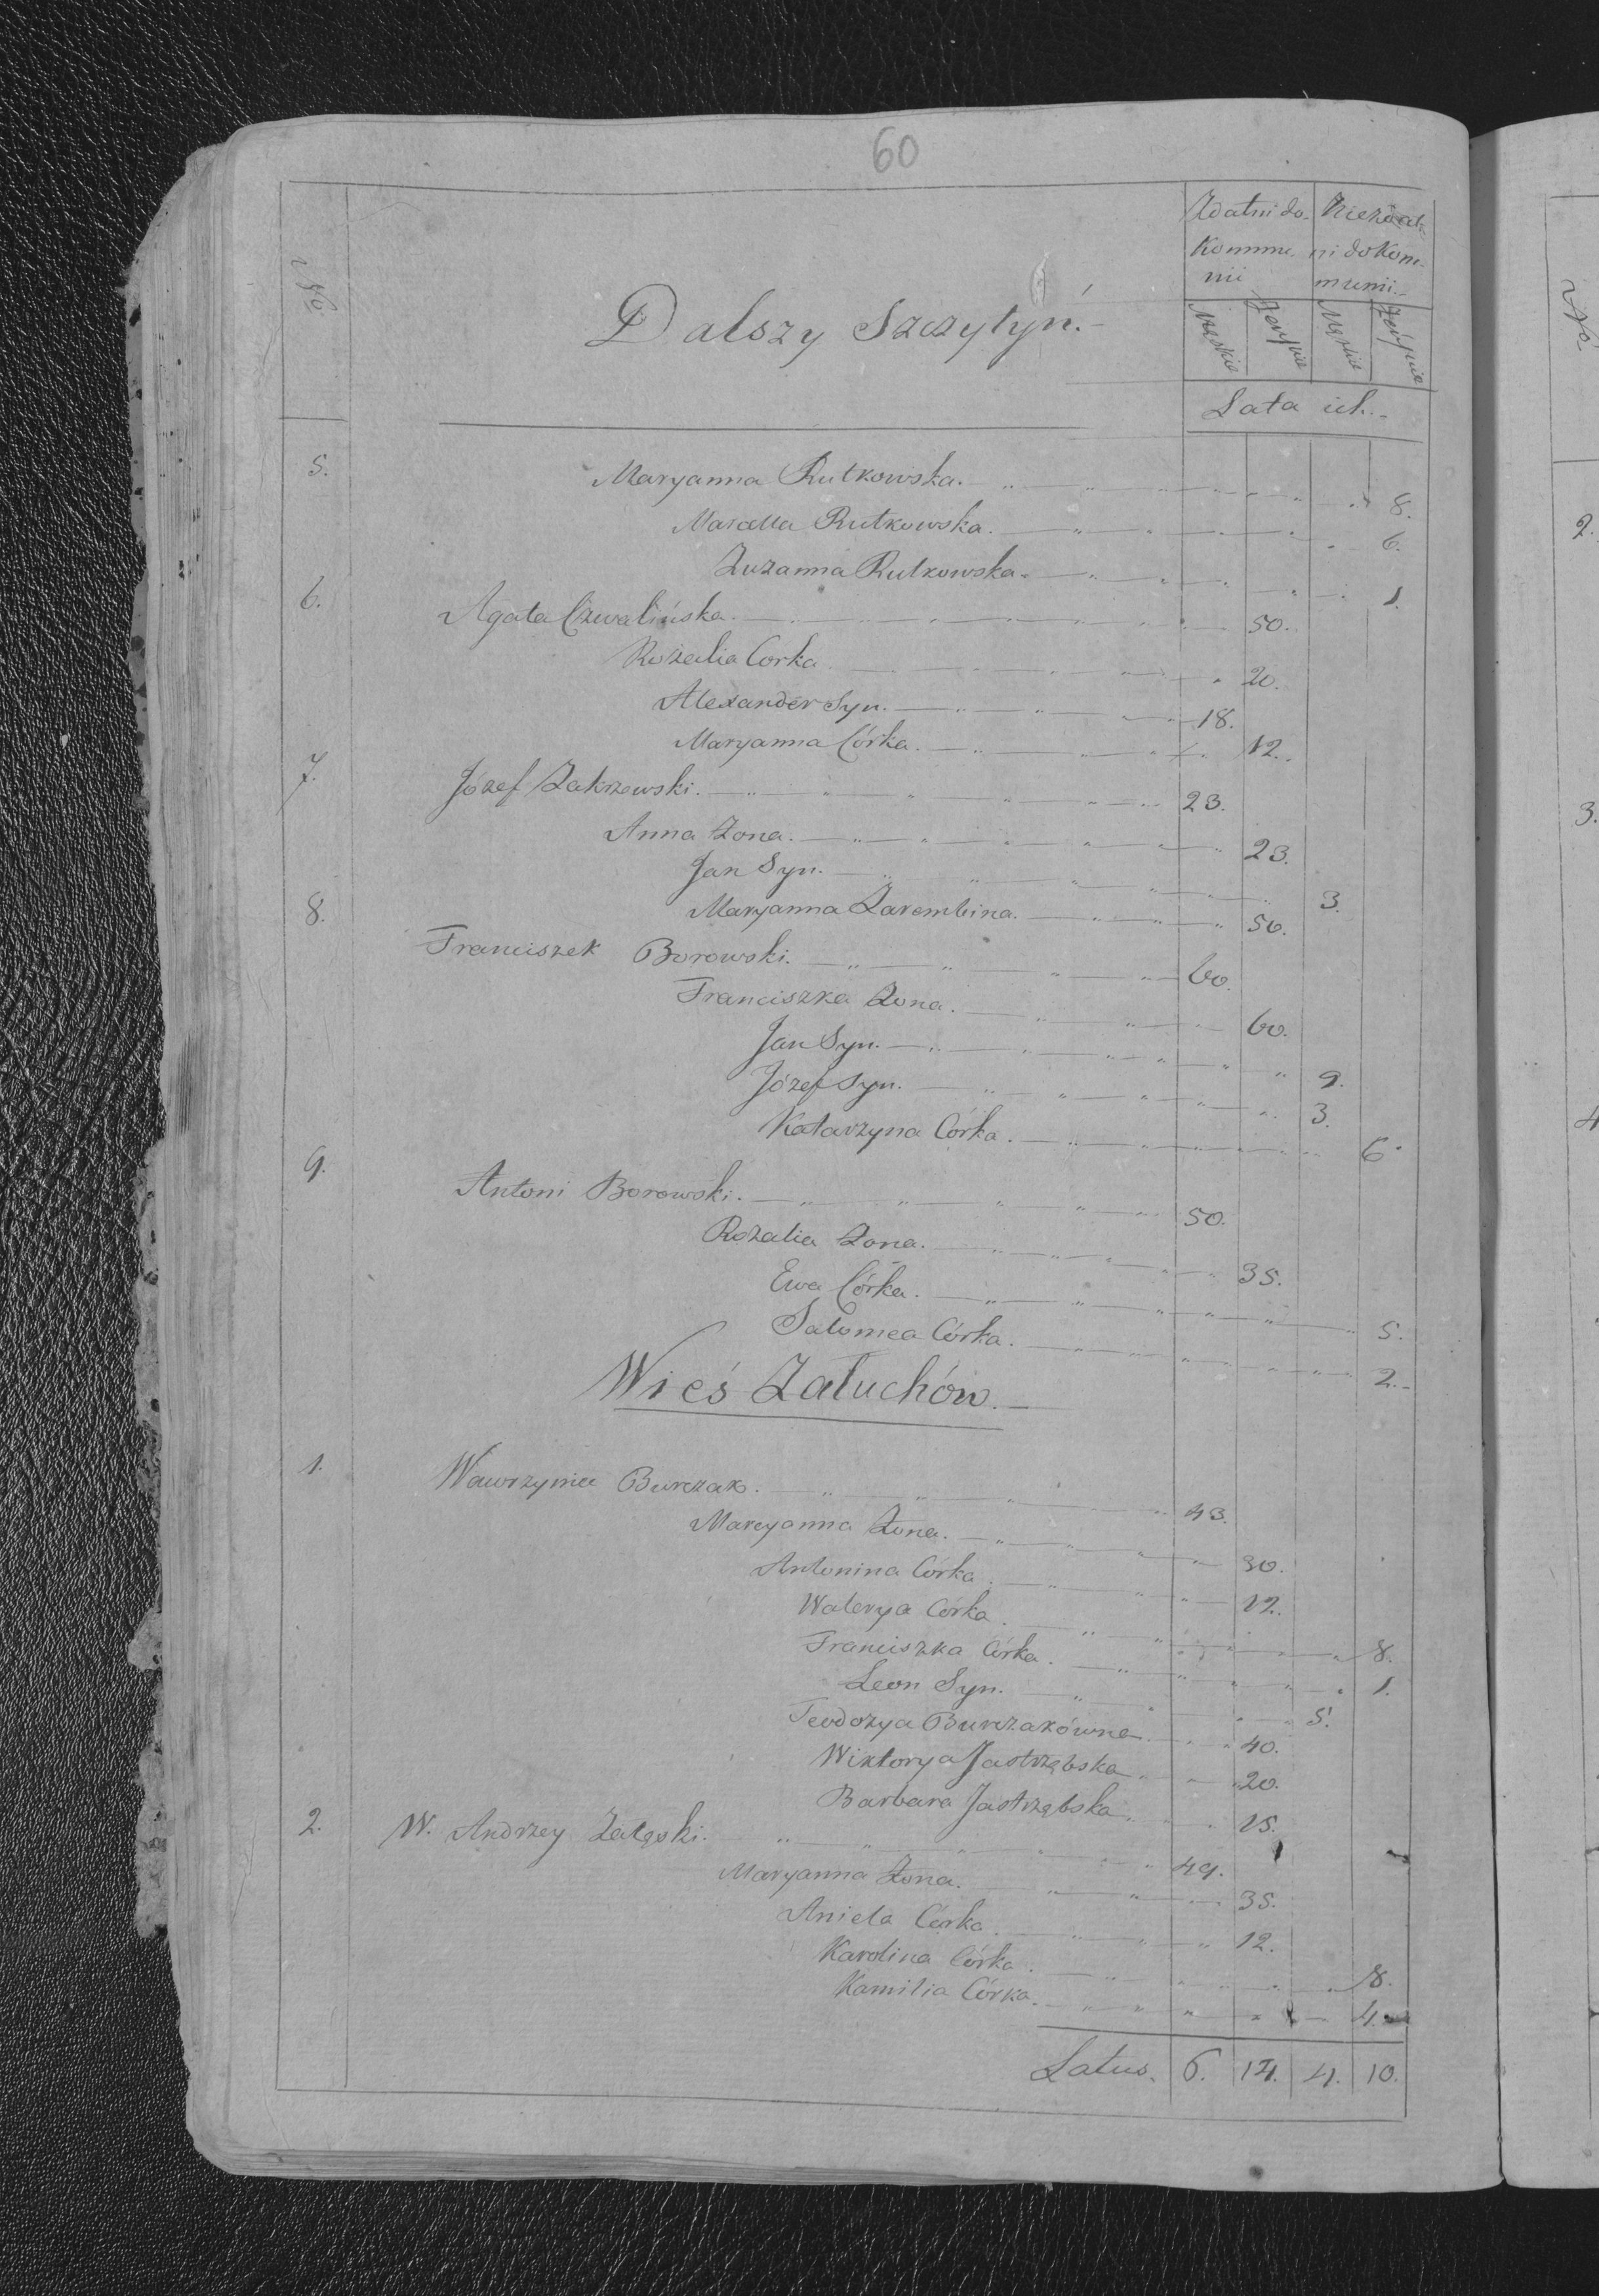 60
No
Dalszy Szczytyń.
Zdatni do Kommunii
Niezdatni do Kommunii
Męskie Żeńskie Męskie Żeńskie
Lata ich.
5. Maryanna Rutkowska. 8.
Marcella Rutkowska. 6.
Zuzanna Rutkowska. 1.
6. Agata Czwalińska. 50.
Rozalia Corka. 20.
Alexander Syn. 18.
Maryanna Córka. 12.
7. Józef Zakrzewski. 23.
Anna Żona. 23.
Jan Syn. 3.
Maryanna Zarembina. 50.
8. Franciszek Borowski. 60.
Franciszka Żona. 60.
Jan Syn. 9.
Józef Syn. 3.
Katarzyna Córka. 6.
9. Antoni Borowski. 50.
Rozalia Żona. 35.
Ewa Córka. 5.
Salomea Córka. 2.
Wieś Załuchów.
1. Wawrzyniec Burczak. 43.
Maryanna Żona. 30.
Antonina Córka. 12.
Walerya Córka. 8.
Franciszka Córka. 1.
Leon Syn. 5.
Teodozya Burczakówna 40.
Wiktorya Jastrzębska. 20.
Barbara Jastrzębska. 15.
2. W. Andrzey Załęski. 49.
Maryanna Żona. 35.
Aniela Córka. 12.
Karolina Córka. 8.
Kamilia Córka. 4.
Latus. 6. 14. 4. 10.
No
2.
3.
4